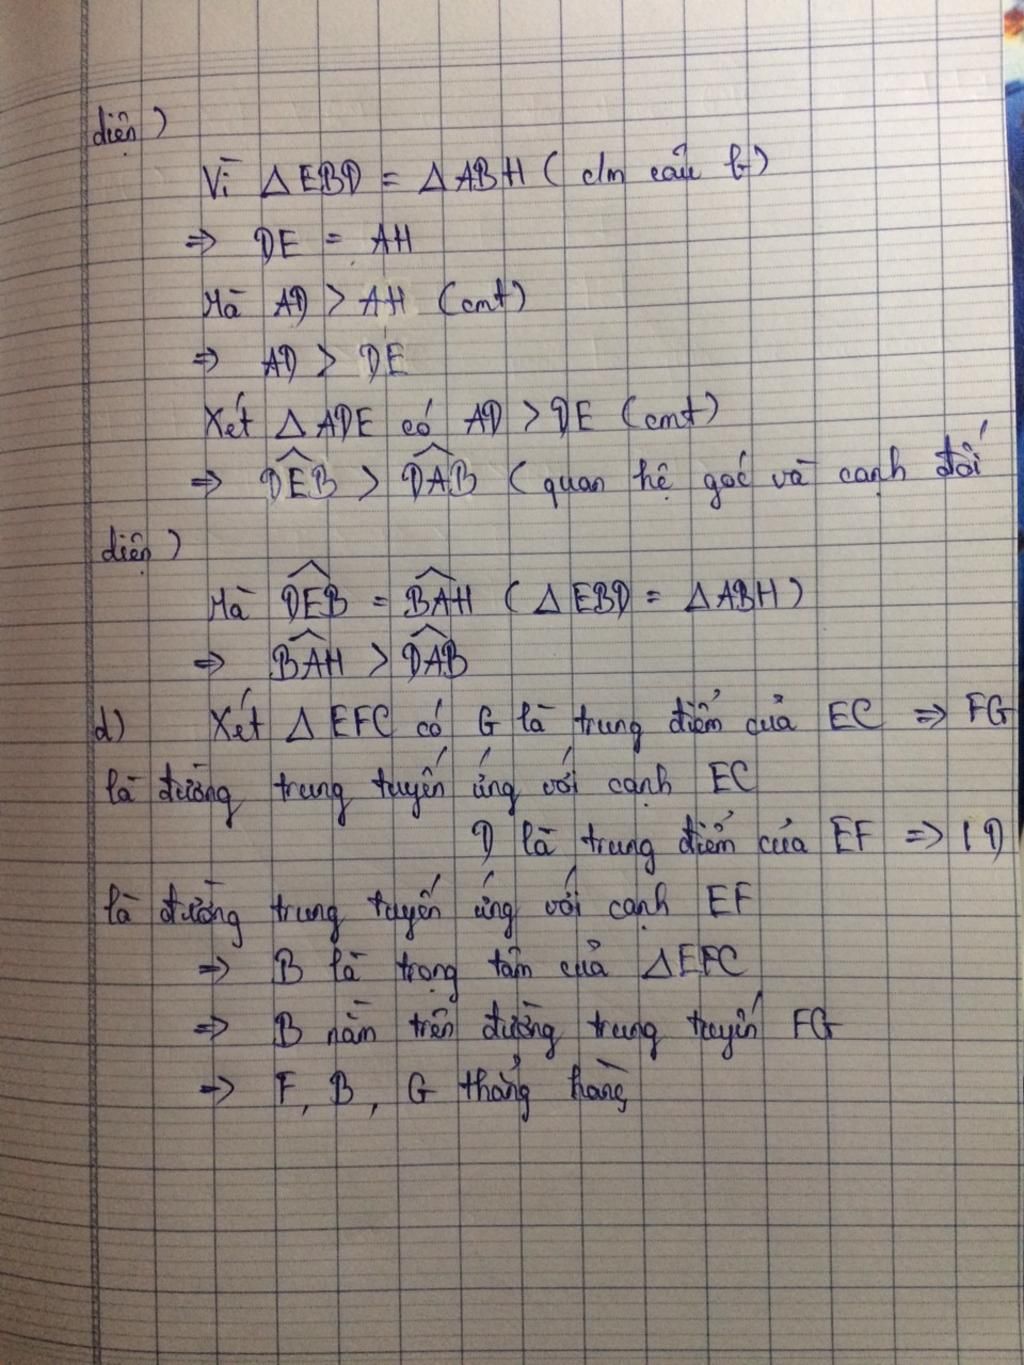 diện)
Vì △EBD = △ABH ( cm câu b)
=> DE = AH
Mà AD > AH (cmt)
=> AD > DE
Xét △ADE có AD > DE (cmt)
=> DEB > DAB ( quan hệ góc và cạnh đối
diện)
Mà DEB = BAH ( △EBD = △ABH )
=> BAH > DAB
d) Xét △EFC có G là trung điểm của EC => FG
là đường trung tuyến ứng với cạnh EC
D là trung điểm của EF =>
là đường trung tuyến ứng với cạnh EF
=> B là trọng tâm của △EFC
=> B nằm trên đường trung tuyến FG
=> F, B, G thẳng hàng